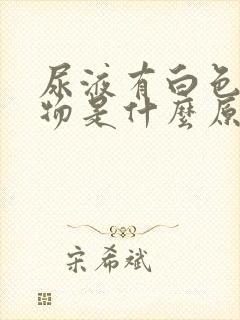 尿液有白色
物是什麼原
宋希斌